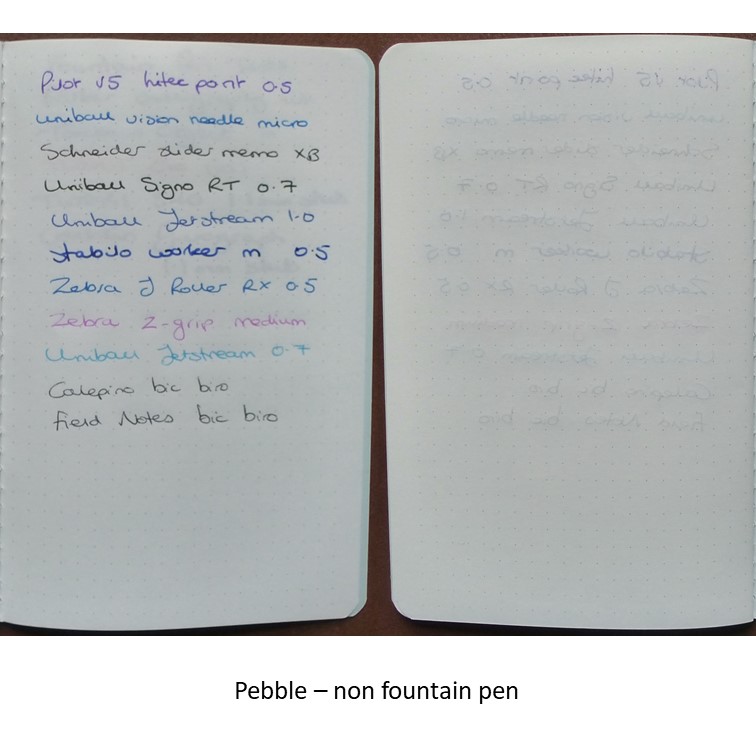 Pilot V5 hitec point 0.5
Uniball vision needle micro
Schneider slider memo XB
Uniball Signo RT 0.7
Uniball Jetstream 1.0
Stabilo worker m 0.5
Zebra J Roller RX 0.5
Zebra Z-grip medium
Uniball Jetstream 0.7
Calepino bic biro
Field Notes bic biro
Pebble – non fountain pen